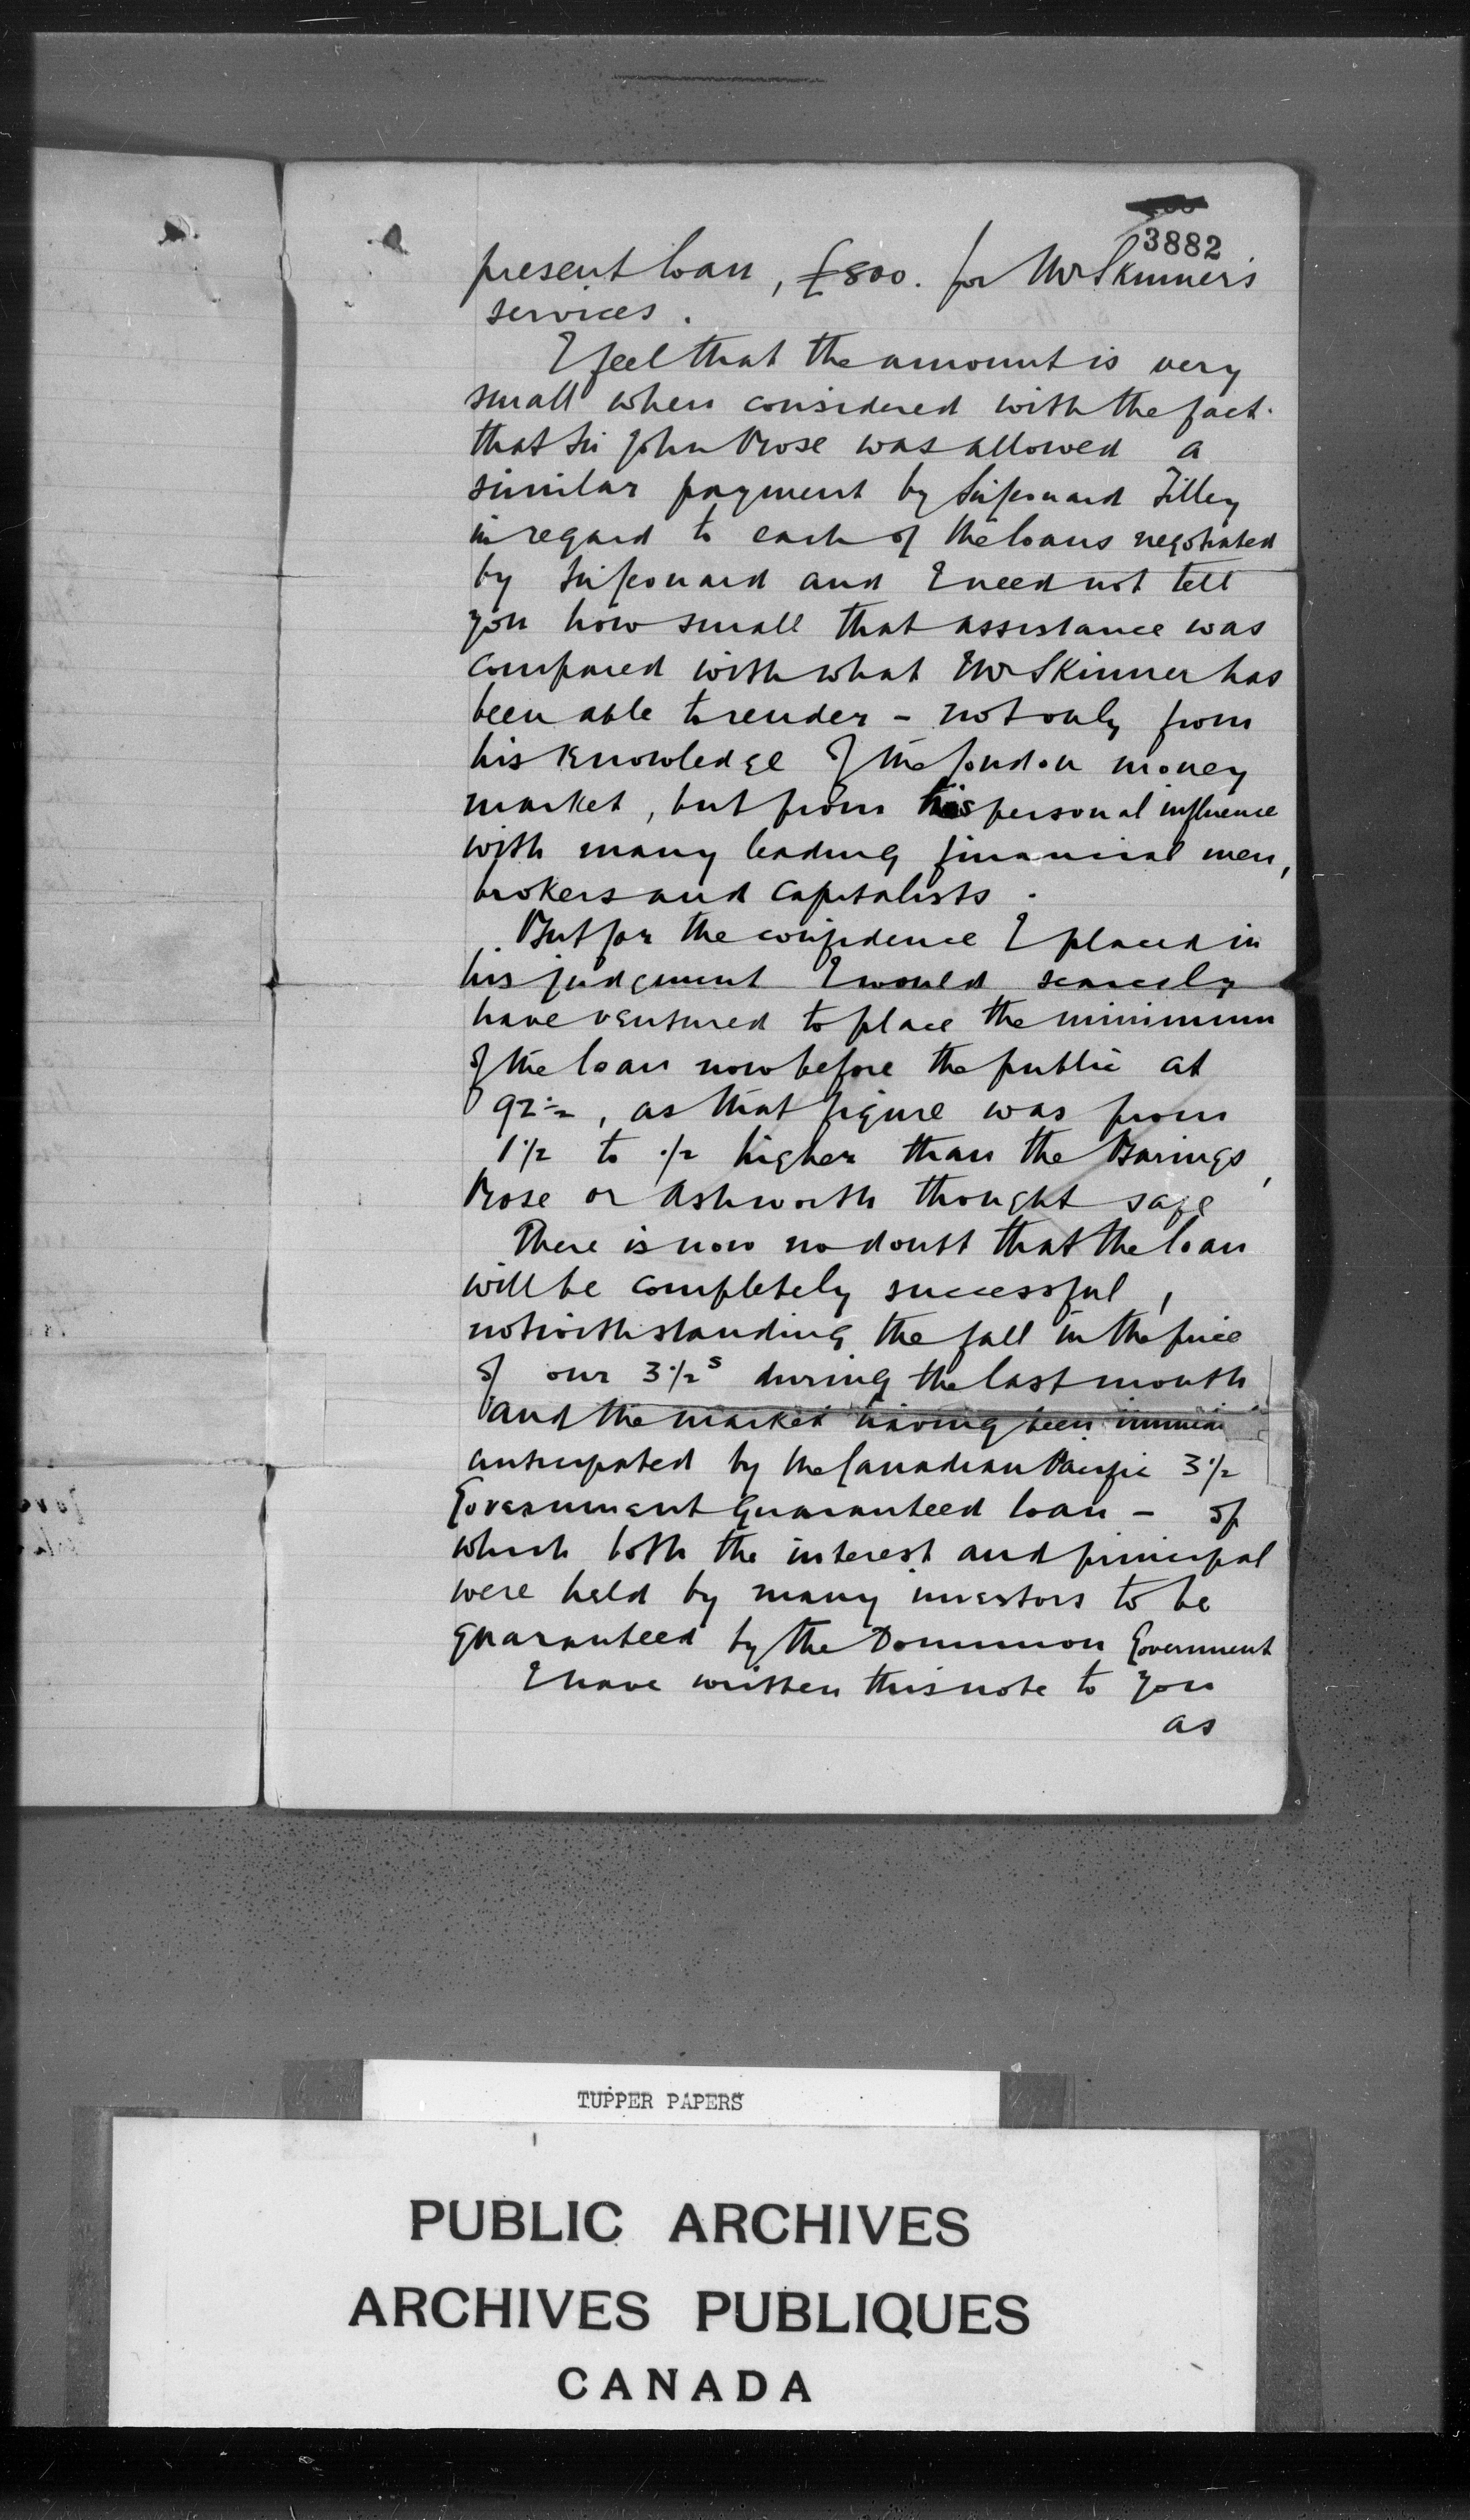 3882
present loan, £800. for Mr Skinner's
services.
I feel that the amount is very
small when considered with the fact.
that Sir John Rose was allowed a
similar payment by Sir Leonard Tilley
in regard to each of the loans negotiated
by Sir Leonard and I need not tell
you how small that assistance was
compared with what Mr Skinner has
been able to render - not only from
his knowledge of the London money
market, but from his personal influence
with many leading financial men,
brokers and capitalists.
But for the confidence I placed in
his judgment I would scarcely
have ventured to place the minimum
of the loan now before the public at
92½, as that figure was from
1½ to ½ higher than the Barings,
Rose or Ashworth thought safe
There is now no doubt that the loan
will be completely successful,
notwithstanding the fall in the price
of our 3½s during the last month
and the market having been
anticipated by the Canadian Pacific 3½
Government Guaranteed loan - of
which both the interest and principal
were held by many investors to be
guaranteed by the Dominion Government
I have written this note to you
as
TUPPER PAPERS
PUBLIC ARCHIVES
ARCHIVES PUBLIQUES
CANADA